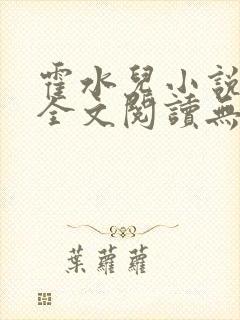 霍水兒小說
全文閱讀無
葉蘿蘿